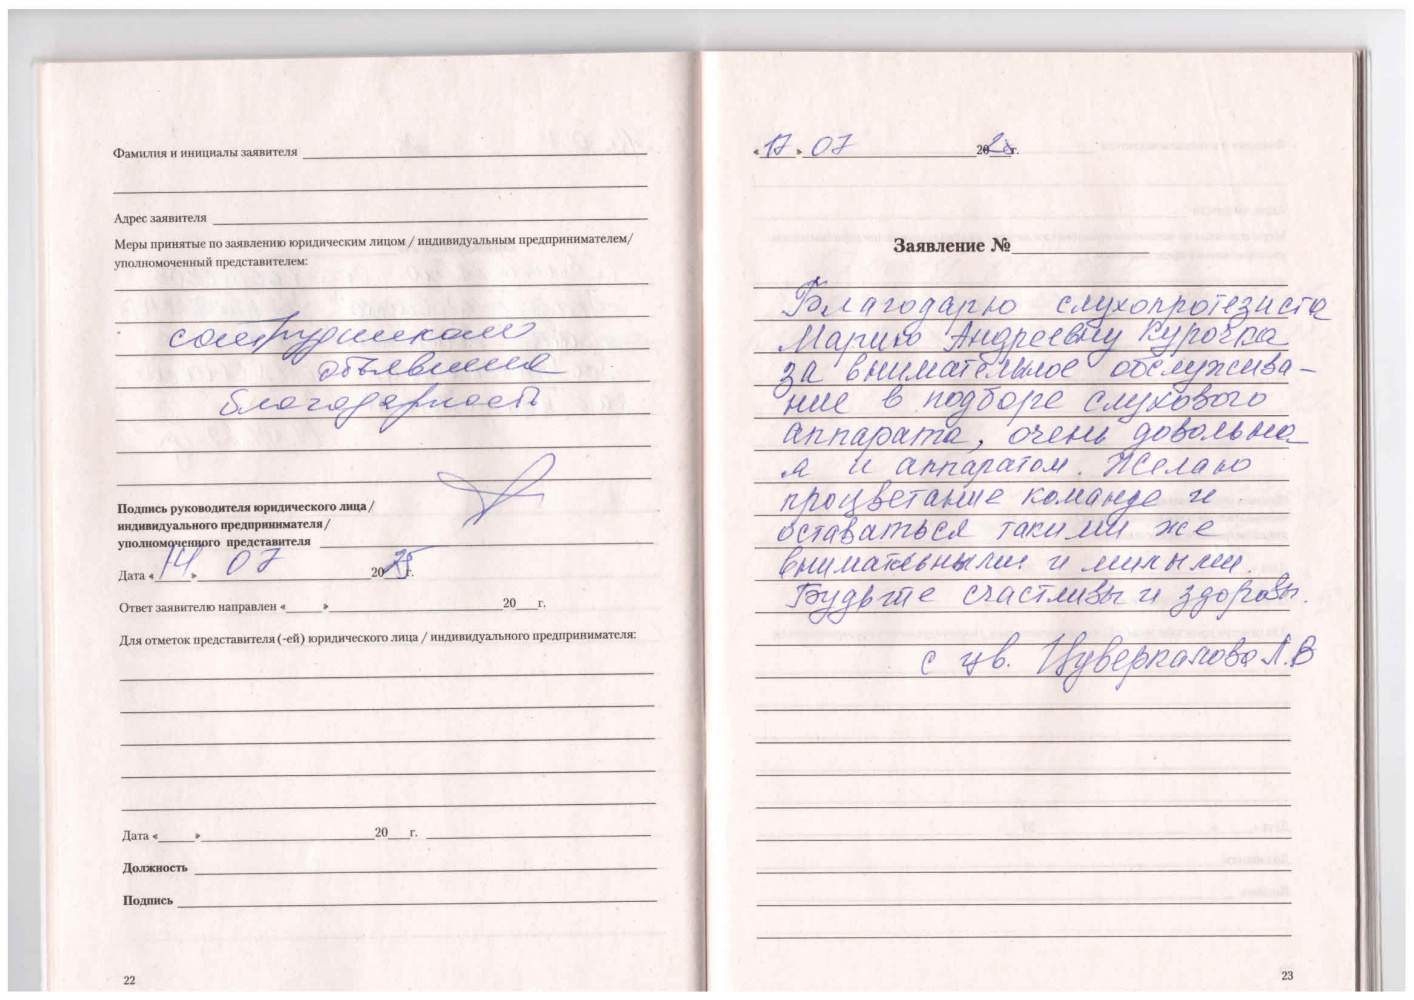 Фамилия и инициалы заявителя
Адрес заявителя
Меры принятые по заявлению юридическим лицом / индивидуальным предпринимателем/
уполномоченный представителем:
сотрудникам
объявлена
благодарность
Подпись руководителя юридического лица/
индивидуального предпринимателя/
уполномоченного представителя
Дата «14» 07 2025г.
Ответ заявителю направлен «» 20 г.
Для отметок представителя (-ей) юридического лица / индивидуального предпринимателя:
Дата «» 20 г.
Должность
Подпись
22
«17» 07 2025г.
Заявление №
Благодарю слухопротезиста
Марию Андреевну Курочка
за внимательное обслужива-
ние в подборе слухового
аппарата, очень довольна
я и аппаратом. Желаю
процветание команде и
оставаться такими же
внимательными и милыми.
Будьте счастливы и здоровы.
с ув. Л.В
23